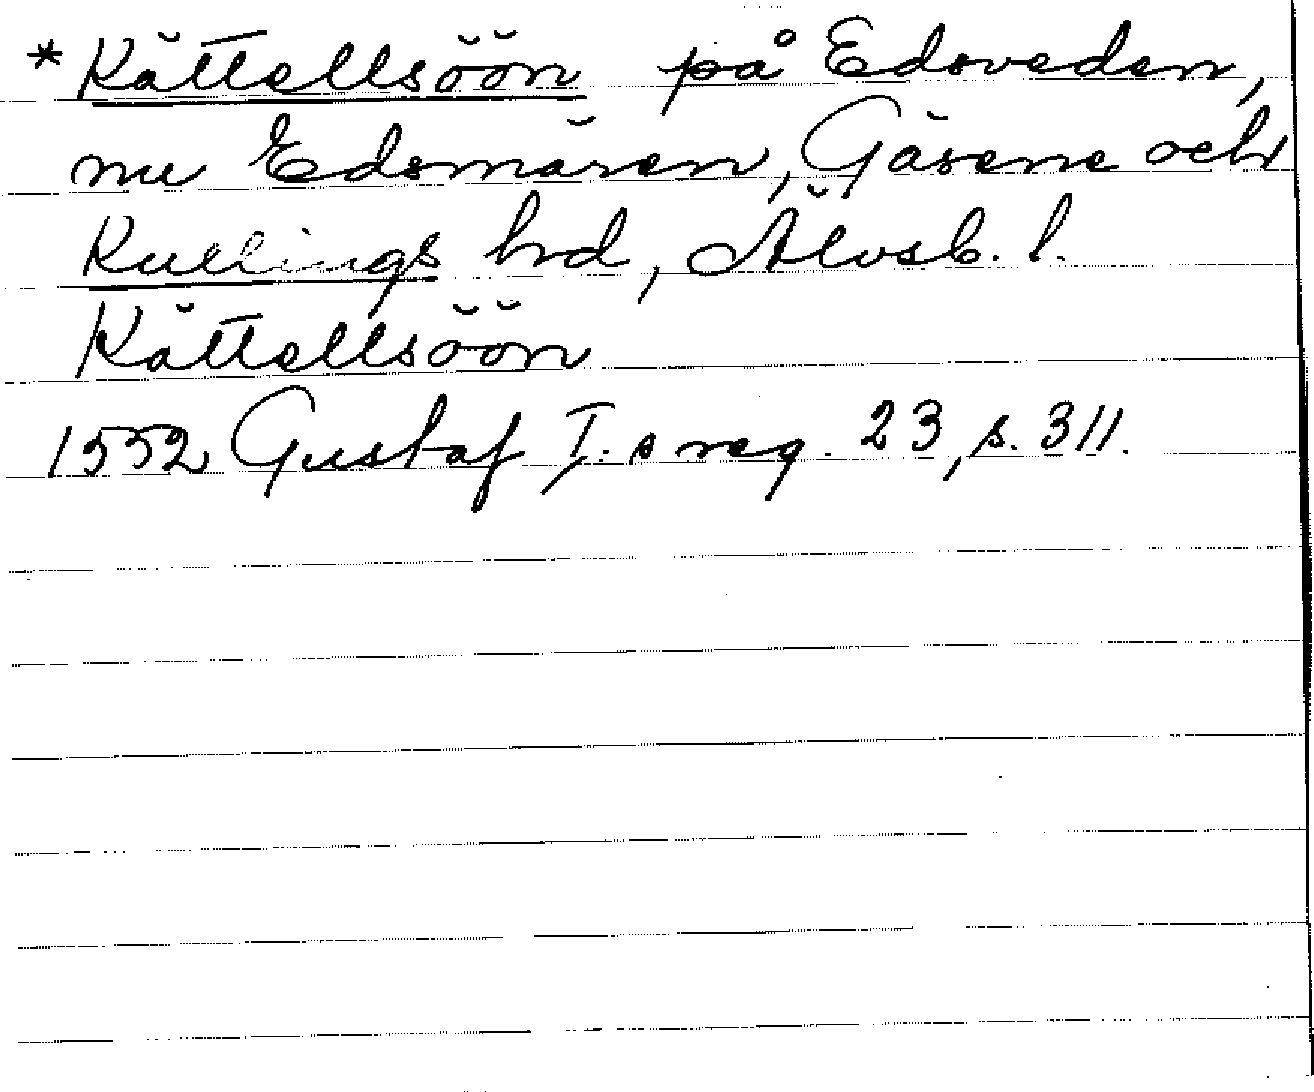 *Kättellsöön på Edsveden,
nu Edsmären, Gäsene och
Kullings hd, Älvsb. l.
Kättellsöön
1552 Gustaf I:s reg. 23, s. 311.